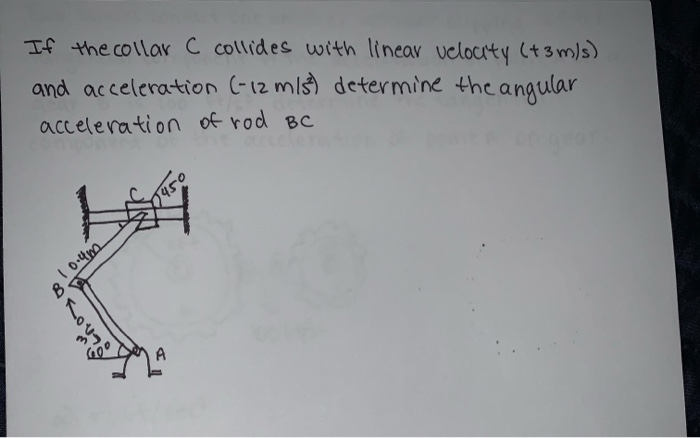 If the collar C collides with linear velocity (+3m/s)
and acceleration (-12 m/s²) determine the angular
acceleration of rod BC
C 45°
0.4m
B
60° A